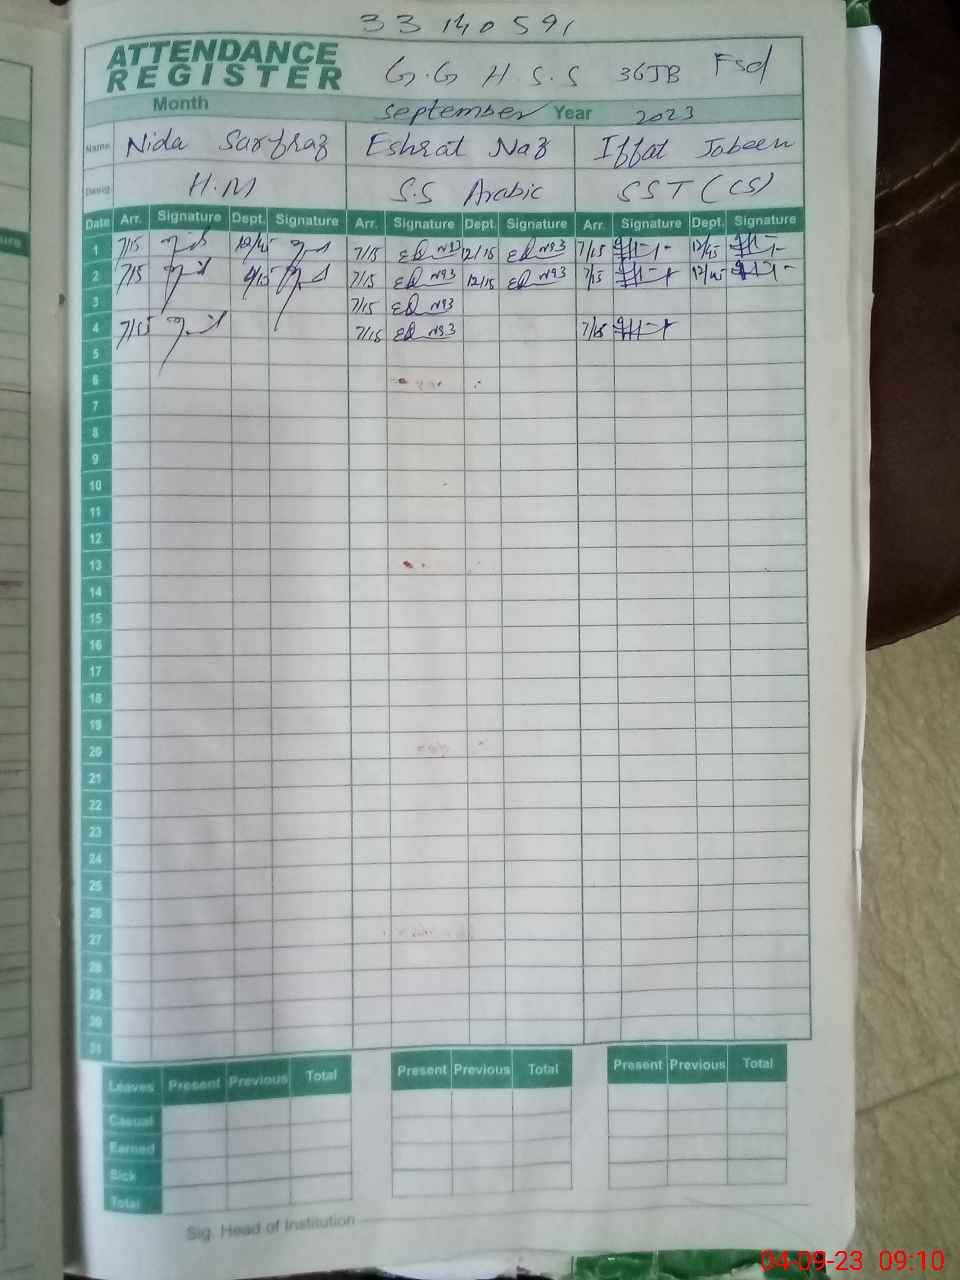 33140591
ATTENDANCE
REGISTER
G.G H.S.S 36JB Fsd
Month September Year 2023
Name Nida Sarfraz Eshrat Naz Iffat Jabeen
Desig. H.M S.S Arabic SST (CS)
Date Arr. Signature Dept. Signature Arr. Signature Dept. Signature Arr. Signature Dept. Signature
1 7/15 12/45 7/15 12/15 7/15 12/45
2 7/15 7/15 12/15 7/15 12/45
3 7/15
4 7/15 7/15 7/15
5
6
7
8
9
10
11
12
13
14
15
16
17
18
19
20
21
22
23
24
25
26
27
28
29
30
31
Leaves Present Previous Total Present Previous Total Present Previous Total
Casual
Earned
Sick
Total
Sig. Head of Institution
04-09-23 09:10